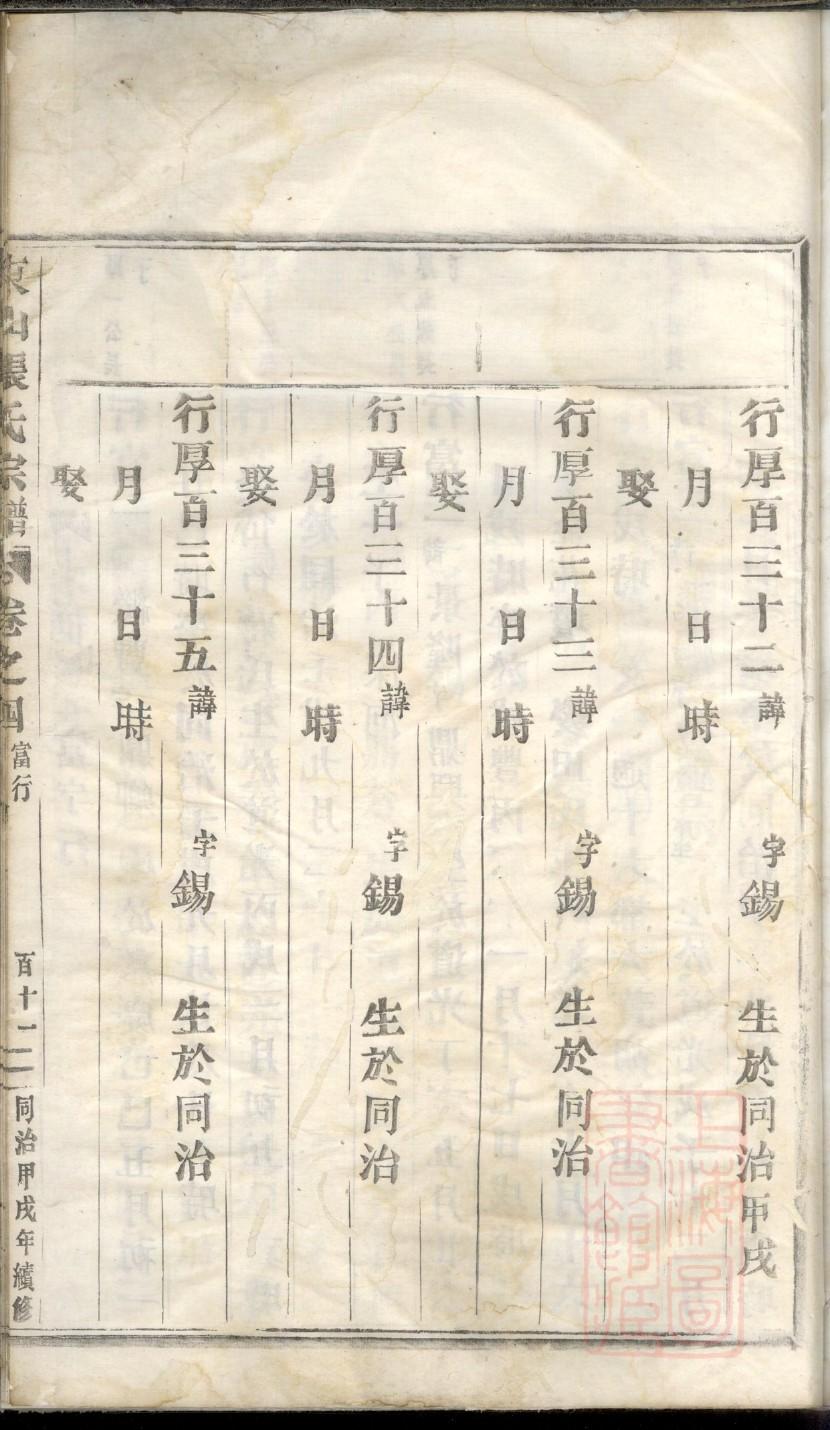 行厚百三十二諱 字錫 生於同治甲戌
月 日 時
娶
行厚百三十三諱 字錫 生於同治
月 日 時
娶
行厚百三十四諱 字錫 生於同治
月 日 時
娶
行厚百三十五諱 字錫 生於同治
月 日 時
娶
東山張氏宗譜 卷之四 富行 百十二 同治甲戌年續修
上海圖書館藏